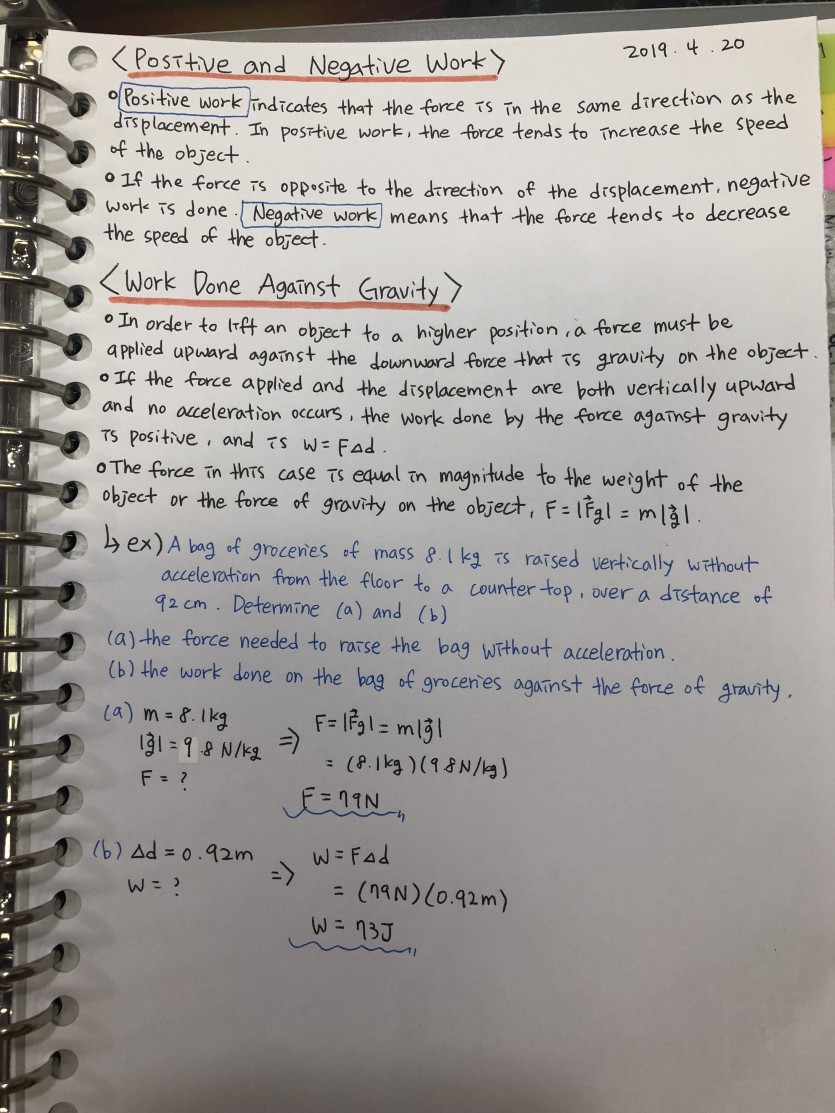 <Positive and Negative Work>
2019. 4. 20
Positive work indicates that the force is in the same direction as the
displacement. In positive work, the force tends to increase the speed
of the object.
If the force is opposite to the direction of the displacement, negative
work is done. Negative work means that the force tends to decrease
the speed of the object.
<Work Done Against Gravity>
In order to lift an object to a higher position, a force must be
applied upward against the downward force that is gravity on the object.
If the force applied and the displacement are both vertically upward
and no acceleration occurs, the work done by the force against gravity
is positive, and is W = FΔd.
The force in this case is equal in magnitude to the weight of the
object or the force of gravity on the object, F = |F⃗g| = m|g⃗|.
↳ ex) A bag of groceries of mass 8.1 kg is raised vertically without
acceleration from the floor to a counter top, over a distance of
92 cm. Determine (a) and (b)
(a) the force needed to raise the bag without acceleration.
(b) the work done on the bag of groceries against the force of gravity.
(a) m = 8.1kg
|g⃗| = 9.8 N/kg
F = ?
⇒ F = |F⃗g| = m|g⃗|
= (8.1kg)(9.8N/kg)
F = 79N
(b) Δd = 0.92m
W = ?
⇒ W = FΔd
= (79N)(0.92m)
W = 73J